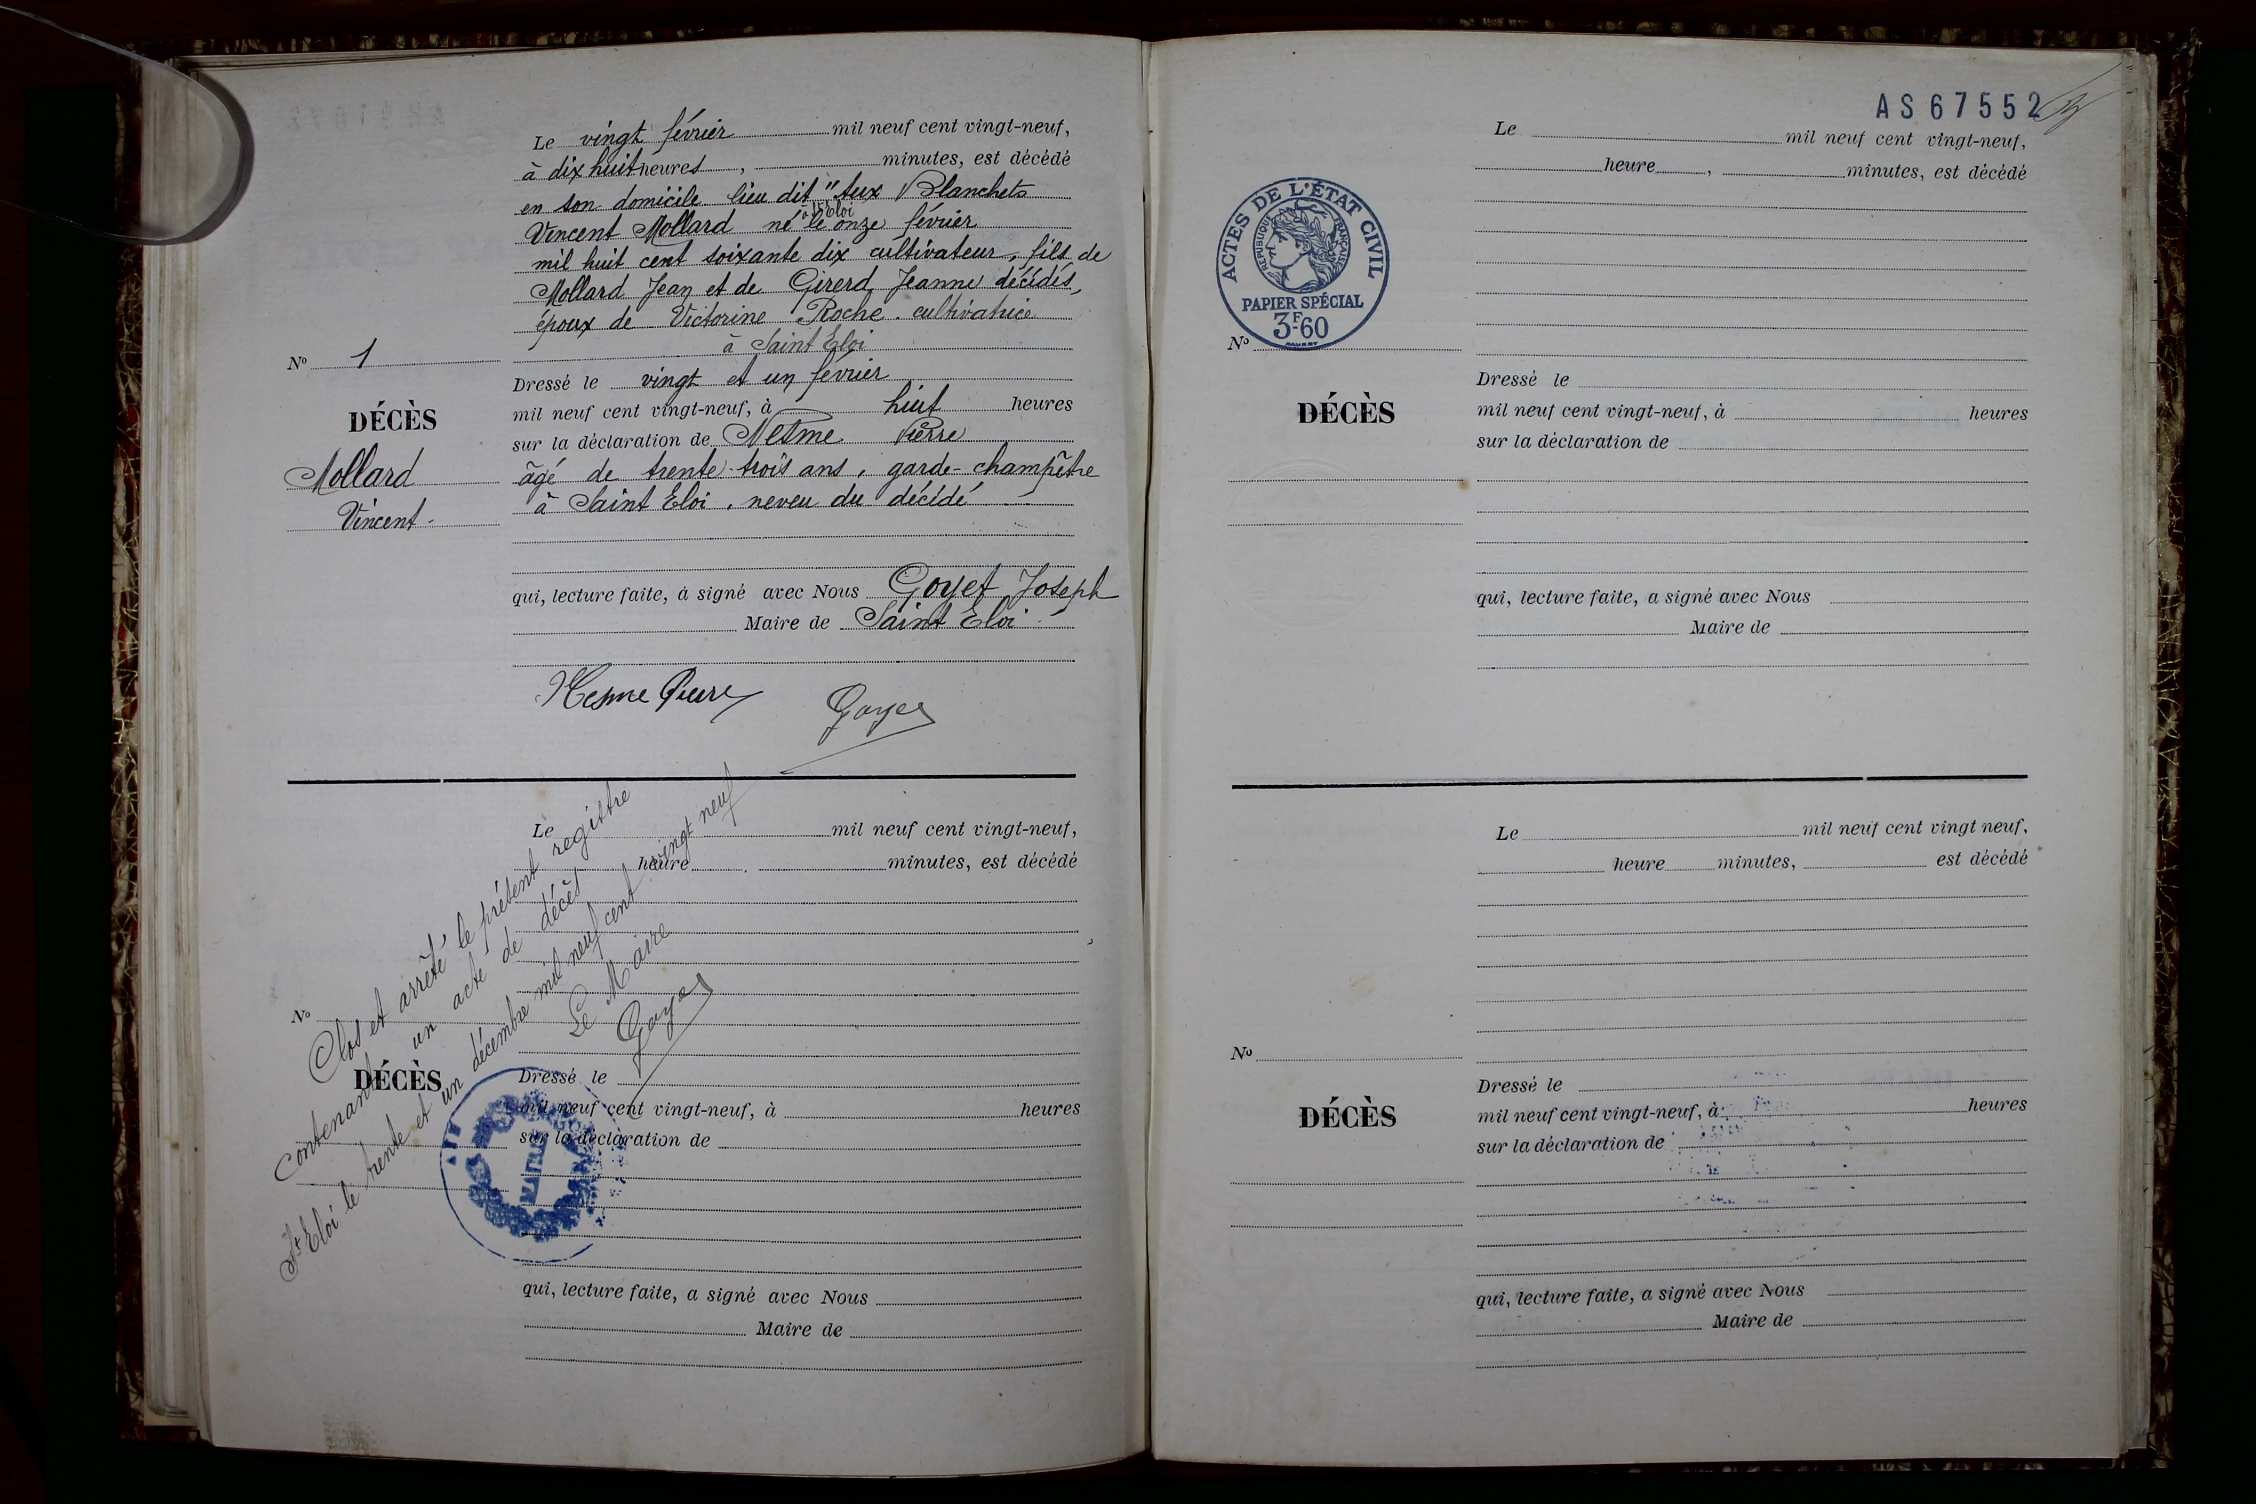 Le vingt février mil neuf cent vingt-neuf,
à dix huit heures, minutes, est décédé
en son domicile lieu dit "Aux Blanchets
à St Eloi
Vincent Mollard né le onze février
mil huit cent soixante dix cultivateur, fils de
Mollard Jean et de Girerd Jeanne décédés,
époux de Victorine Roche. cultivatrice
à Saint Eloi
No 1
DÉCÈS
Mollard
Vincent.
Dressé le vingt et un février
mil neuf cent vingt-neuf, à huit heures
sur la déclaration de Nesme Pierre
âgé de trente-trois ans, garde-champêtre
à Saint Eloi, neveu du décédé
qui, lecture faite, à signé avec Nous Goyet Joseph
Maire de Saint Eloi.
Nesme Pierre
Goyet
Le mil neuf cent vingt-neuf,
heure , minutes, est décédé
No
DÉCÈS
Dressé le
mil neuf cent vingt-neuf, à heures
sur la déclaration de
qui, lecture faite, a signé avec Nous
Maire de
Clos et arrêté le présent registre
contenant un acte de décès
St Eloi le trente et un décembre mil neuf cent vingt neuf
Le Maire
Goyet
AS67552
Le mil neuf cent vingt-neuf,
heure , minutes, est décédé
ACTES DE L'ÉTAT CIVIL
RÉPUBLIQUE FRANÇAISE
PAPIER SPÉCIAL
3F.60
No
DÉCÈS
Dressé le
mil neuf cent vingt-neuf, à heures
sur la déclaration de
qui, lecture faite, a signé avec Nous
Maire de
Le mil neuf cent vingt neuf,
heure minutes, est décédé
No
DÉCÈS
Dressé le
mil neuf cent vingt-neuf, à heures
sur la déclaration de
qui, lecture faite, a signé avec Nous
Maire de